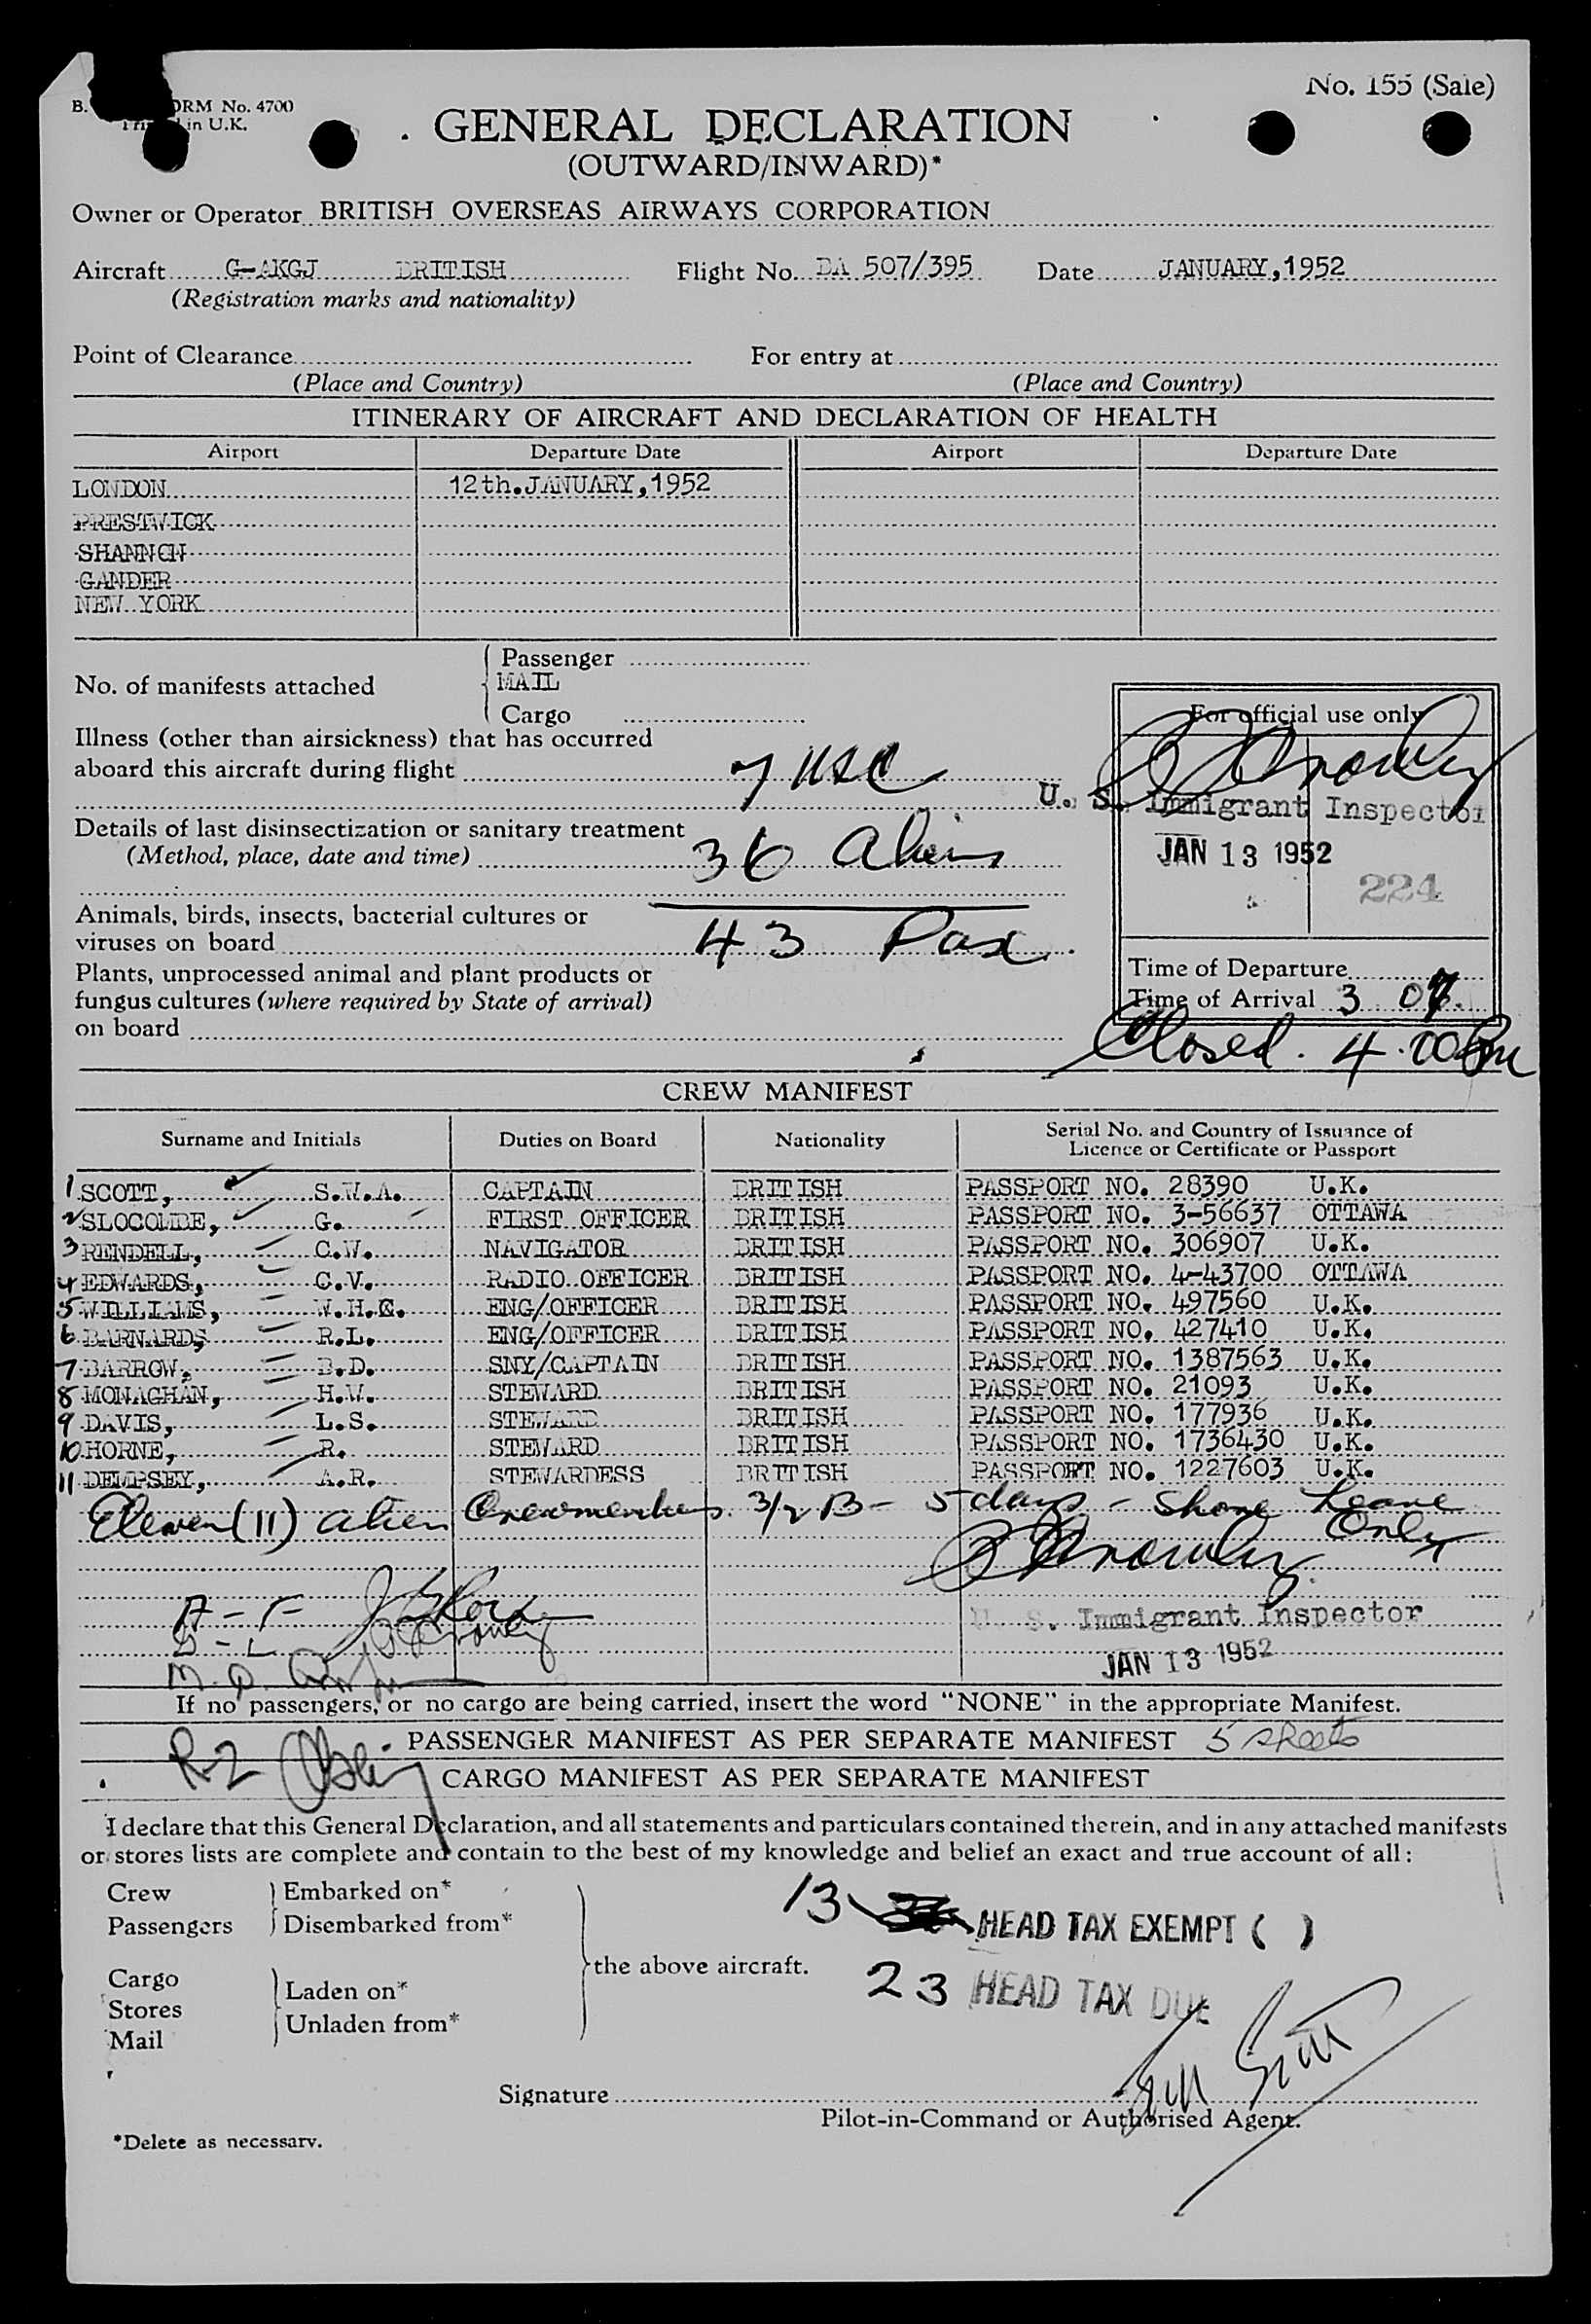 No. 155 (Sale)
B. ORM No. 4700
in U.K.
GENERAL DECLARATION
(OUTWARD/INWARD)*
Owner or Operator BRITISH OVERSEAS AIRWAYS CORPORATION
Aircraft G-AKGJ BRITISH Flight No. BA 507/395 Date JANUARY,1952
(Registration marks and nationality)
Point of Clearance For entry at
(Place and Country) (Place and Country)
ITINERARY OF AIRCRAFT AND DECLARATION OF HEALTH
Airport Departure Date Airport Departure Date
LONDON 12th.JANUARY,1952
PRESTWICK
SHANNON
GANDER
NEW YORK
Passenger
No. of manifests attached MAIL
Cargo
For official use only
Illness (other than airsickness) that has occurred
aboard this aircraft during flight 7 USC
U. S. Immigrant Inspector
Details of last disinsectization or sanitary treatment
(Method, place, date and time) 36 Aliens
JAN 13 1952
224
Animals, birds, insects, bacterial cultures or
viruses on board 43 Pax
Plants, unprocessed animal and plant products or
fungus cultures (where required by State of arrival)
on board
Time of Departure
Time of Arrival 3 07
Closed. 4.00 Pm
CREW MANIFEST
Surname and Initials Duties on Board Nationality Serial No. and Country of Issuance of
Licence or Certificate or Passport
1 SCOTT, S.W.A. CAPTAIN BRITISH PASSPORT NO. 28390 U.K.
2 SLOCOMBE, G. FIRST OFFICER BRITISH PASSPORT NO. 3-56637 OTTAWA
3 RENDELL, C.W. NAVIGATOR BRITISH PASSPORT NO. 306907 U.K.
4 EDWARDS, C.V. RADIO OFFICER BRITISH PASSPORT NO. 4-43700 OTTAWA
5 WILLIAMS, W.H. ENG/OFFICER BRITISH PASSPORT NO. 497560 U.K.
6 BARNARDS R.L. ENG/OFFICER BRITISH PASSPORT NO. 427410 U.K.
7 BARROW, B.D. SNY/CAPTAIN BRITISH PASSPORT NO. 1387563 U.K.
8 MONAGHAN, H.W. STEWARD BRITISH PASSPORT NO. 21093 U.K.
9 DAVIS, L.S. STEWARD BRITISH PASSPORT NO. 177936 U.K.
10 HORNE, R. STEWARD BRITISH PASSPORT NO. 1736430 U.K.
11 DEMPSEY, A.R. STEWARDESS BRITISH PASSPORT NO. 1227603 U.K.
Eleven (11) alien Crewmembers 3/2 B - 5 days - Shore Leave
Only
A-F
G-L
U. S. Immigrant Inspector
JAN 13 1952
M.Q.
If no passengers, or no cargo are being carried, insert the word "NONE" in the appropriate Manifest.
PASSENGER MANIFEST AS PER SEPARATE MANIFEST 5 sheets
R-Z
CARGO MANIFEST AS PER SEPARATE MANIFEST
I declare that this General Declaration, and all statements and particulars contained therein, and in any attached manifests
or stores lists are complete and contain to the best of my knowledge and belief an exact and true account of all:
Crew Embarked on*
Passengers Disembarked from*
13 HEAD TAX EXEMPT ( )
the above aircraft.
Cargo
Stores Laden on*
Mail Unladen from*
23 HEAD TAX DUE
Signature
Pilot-in-Command or Authorised Agent.
*Delete as necessary.